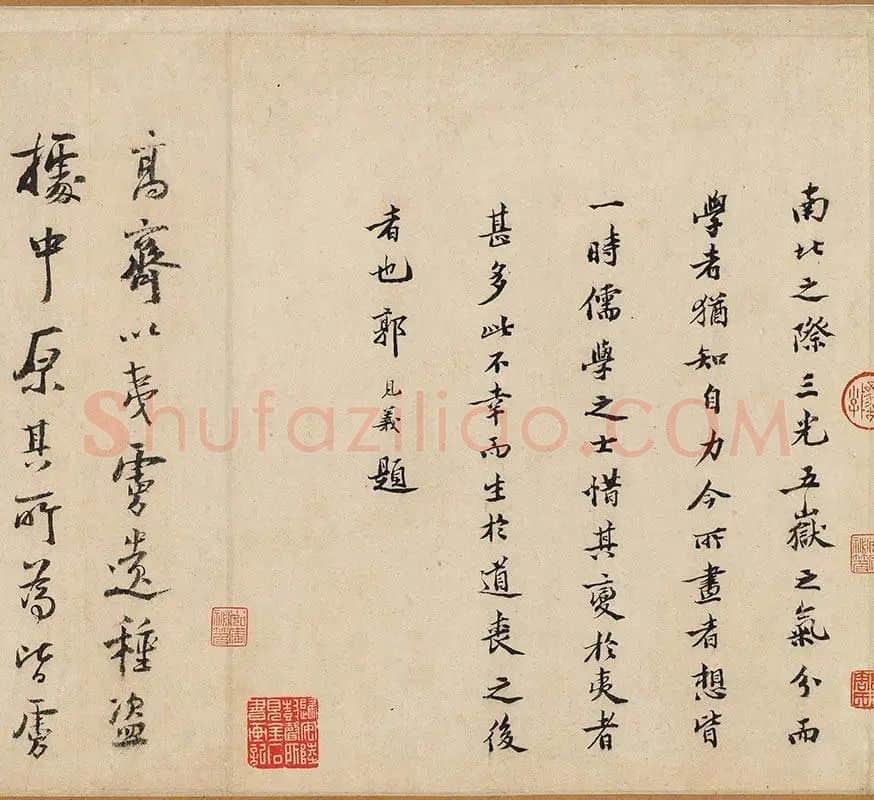 南北之際三光五嶽之氣分而
學者猶知自力今所畫者想皆
一時儒學之士惜其變於夷者
甚多此不幸而生於道喪之後
者也郭見義題
高齊以夷虜遺種盜
據中原其所為皆虜
Shufaziliao.COM